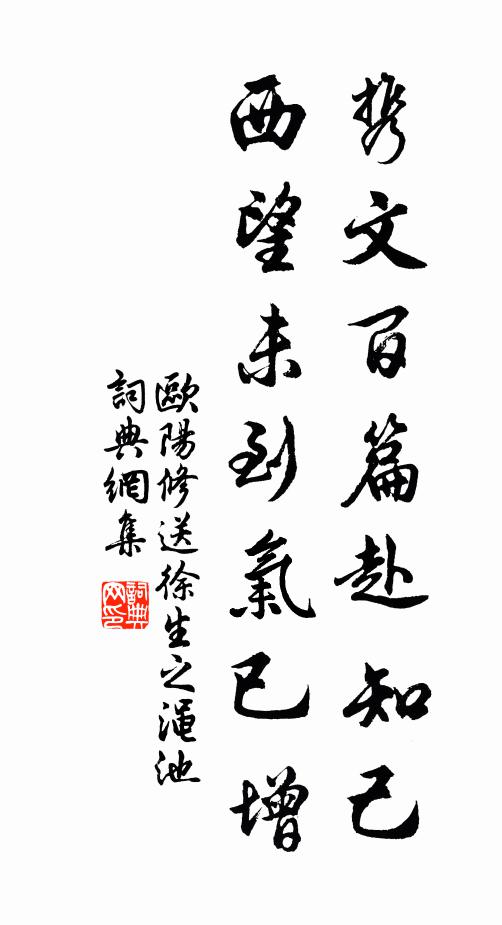 携文百篇赴知己
西望未到氣已增
歐陽修送徐生之澠池
詞典網集
詞典網印